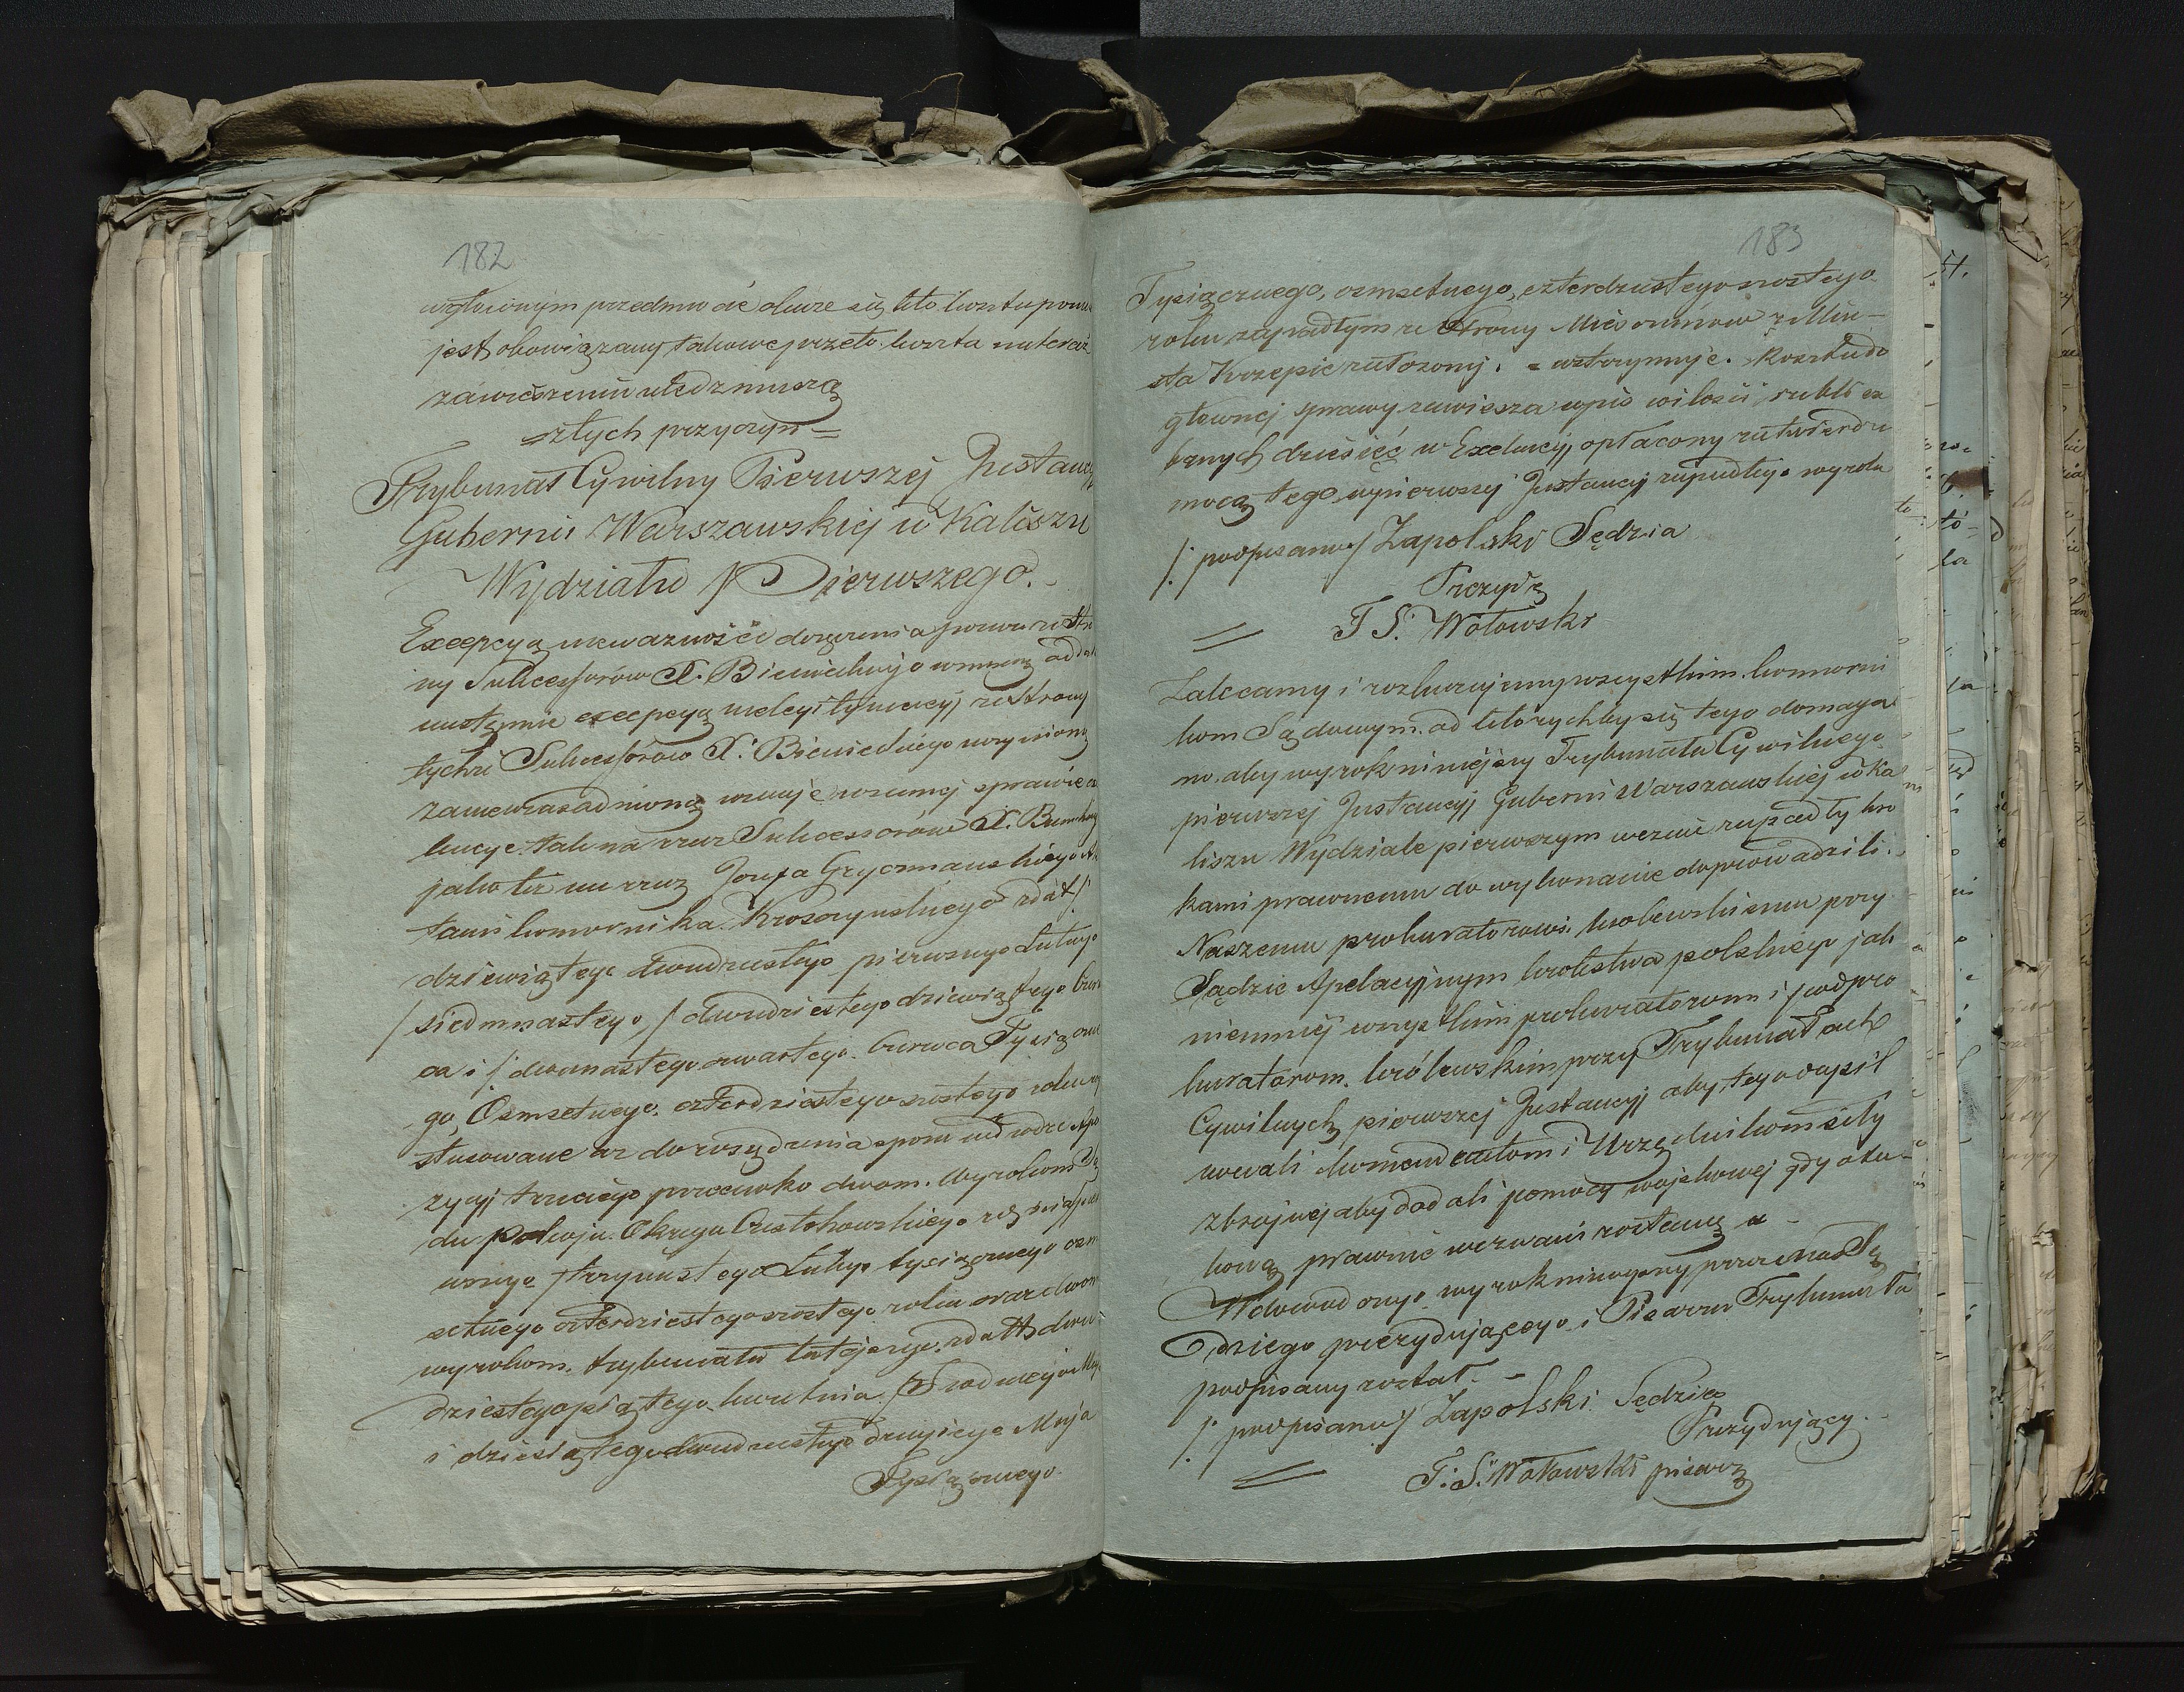 182
jest obowiązany takowe przeto koszta
zawieszeniu uledz muszą
= z tych przyczyn =
Trybunał Cywilny Pierwszej Instancyi
Gubernii Warszawskiej w Kaliszu
Wydziału Pierwszego.
Excepcyą nieważności doręczenia pozwu ze stro
ny Sukcessorów X. Bienieckiego wnieśną
następnie excepcyą nielegitymacyj ze strony
tychże Sukcessorów X. Bienieckiego uczynioną
za nieuzasadnioną uznaje w samej sprawie
kucye tak na rzecz Sukcessorów X.
jako też na rzecz Józefa Gryczmanskiego
Komornika Kroszczynskiego z dat /
dziewiątego dwudziestego pierwszego Lutego
/ siedmnastego / dwudziestego dziewiątego Czerw
ca i / dwunastego czwartego Czerwca Tysiączne
go, Osmsetnego, czterdziestego szóstego roku
stosowane aż do rozsądzenia sporu w drodze Apo
zycyj trzeciego przeciwko dwom Wyrokom Są
du pokoju Okręgu Częstochowskiego
trzynastego Lutego tysiącznego osm
setnego czterdziestego szóstego roku oraz dwom
wyrokom trybunału tutejszego z datt dwu
dziestego piątego kwietnia / siódmego Maja
i dziesiątego dwudziestego drugiego Maja
Tysiącznego
183
Tysiącznego, osmsetnego, czterdziestego szóstego
roku zapadłym ze Strony Mieszczanów z Mia-
sta Krzepic założonej. = wstrzymuje. Koszta do
głownej sprawy zawiesza wpis w ilości rubli sre
brnych dziesięć w Exekucyj opłacony zatwierdza
mocą tego w pierwszej Instancyj zapadłego wyroku
/: podpisano / Zapolski Sędzia
Prezyd
= T S. Wołowski
Zalecamy i rozkazujemy wszystkim komorni
kom Sądowym od których by się tego domaga
no. aby wyrok niniejszy Trybunału Cywilnego
pierwszej Instancyj Gubernii Warszawskiej w Ka
liszu Wydziale pierwszym wezwie zapadły kro
kami prawnemi do wykonania doprowadzili.
Naszemu prokuratorowi królewskiemu przy
Sądzie Apelacyjnym królestwa polskiego jak
niemniej wszystkim prokuratorom i podpro
kuratorom królewskim przy Trybunałach
Cywilnych pierwszej Instancyj aby tego dopil
nowali komendantom i Urzędnikom siły
zbrojnej aby dodali pomocy wojskowej gdy o ta-
kową prawnie wezwani zostaną =
W dowód czego wyrok niniejszy przez nas Sę
dziego prezydującego i Pisarza Trybunału
podpisany został. -
/: podpisano / Zapolski Sędzia
Prezydujący.
= T: S. Wołowski pisarz